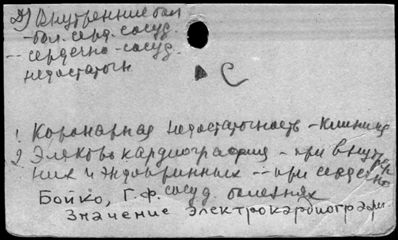 Д) Внутренние бол
- бол. серд. сосуд.
-- сердечно-сосуд.
недостаточн
С
1 Коронарная недостаточность - клиника
2 Электрокардиография - при внутрен
них и эндокринных -- при сердечно
сосуд. болезнях
Бойко, Г.Ф.
Значение электрокардиографи